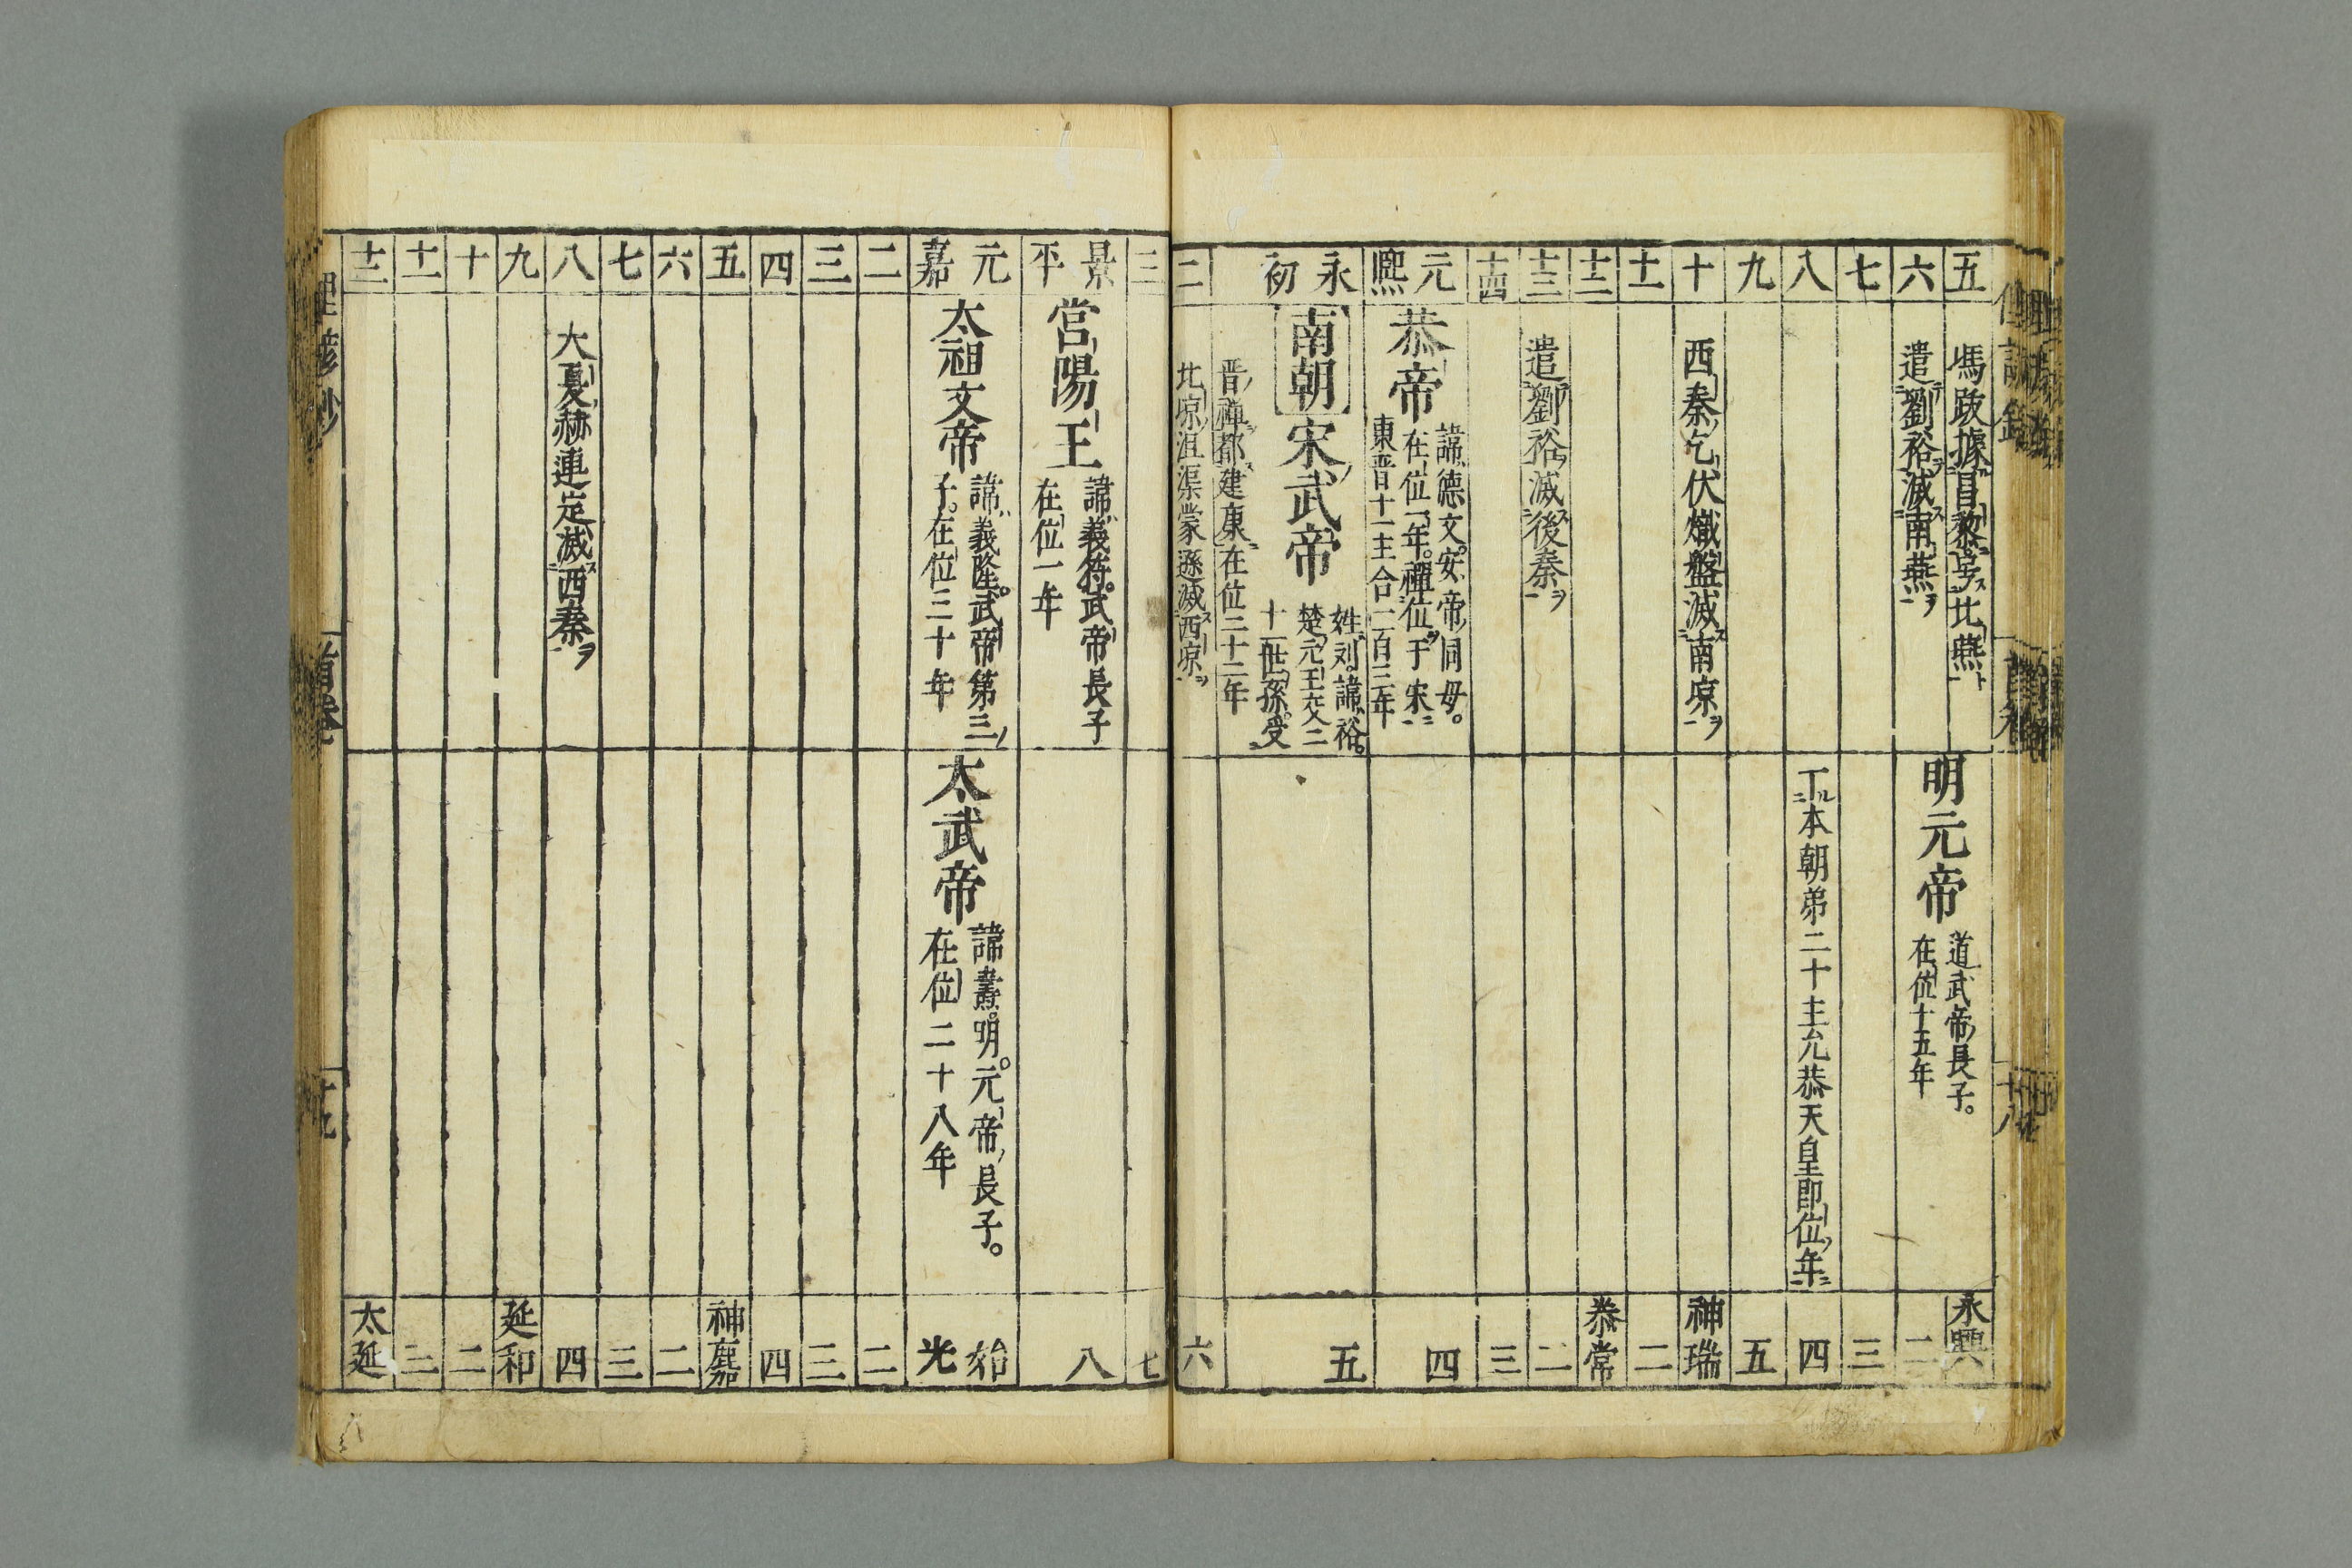 五
馮跋據昌黎号北燕
永興
六
遣劉裕滅南燕
明元帝
道武帝長子。
在位十五年
二
七
三
八
丁本朝弟二十主允恭天皇即位年
四
九
五
十
西秦乞伏熾盤滅南凉
神瑞
十一
二
十二
恭常
十三
遣劉裕滅後秦
二
十四
三
元熙
恭帝
諱德文。安帝同母。
在位一年。禪位于宋
東晋十一主合一百三年
四
永初
南朝
宋武帝
姓刘。諱裕。
楚元王交二
十一世孫。受
五
晋禅都建康在位二十二年
二
北凉沮渠蒙遜滅西凉
六
三
七
景平
営陽王
諱義符。武帝長子
在位一年
八
元嘉
太祖文帝
諱義隆。武帝第三
子。在位三十年
太武帝
諱燾。明元帝長子。
在位二十八年
始光
二
二
三
三
四
四
五
神䴥
六
二
七
三
八
大夏赫連定滅西秦
四
九
延和
十
二
十一
三
十二
太延
首卷
十九